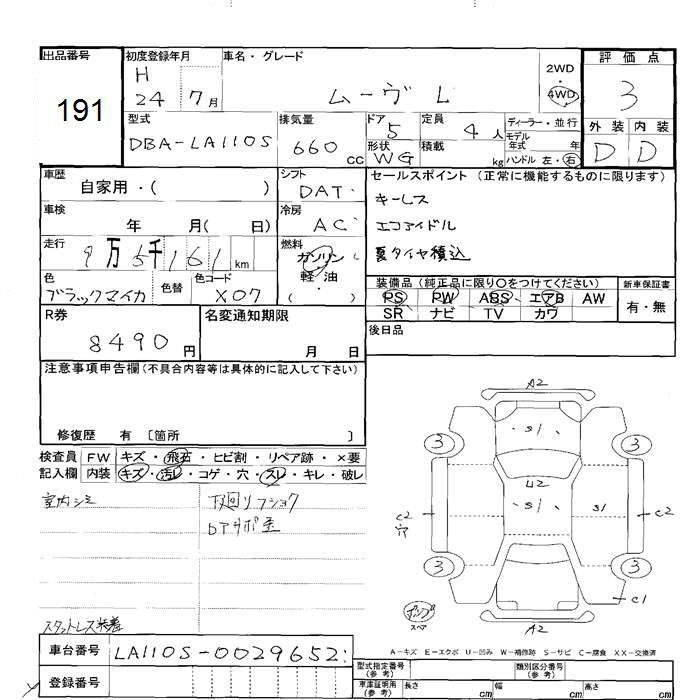 出品番号
191
初度登録年月
H
24 7月
車名・グレード
ムーヴ L
2WD
・
4WD
評価点
3
外装 内装
D D
型式
DBA-LA110S
排気量
660 CC
ドア
5
形状
WG
定員
4 人
積載
kg
ディーラー・並行
モデル
年式 年
ハンドル 左・右
車歴
自家用・( )
シフト
DAT・
セールスポイント (正常に機能するものに限ります)
キーレス
エコアイドル
夏タイヤ積込
車検
年 月( 日)
冷房
AC
走行
9万5千161km
燃料
ガソリン
軽・油
・
( )
色
ブラックマイカ
色替
色コード
X07
装備品(純正品に限り○をつけてください)
PS PW ABS エアB AW
SR ナビ TV カワ
新車保証書
有・無
R券
8490円
名変通知期限
月 日
後日品
注意事項申告欄(不具合内容等は具体的に記入して下さい)
修復歴 有 〔箇所 〕
検査員 FW キズ・飛石・ヒビ割・リペア跡・×要
記入欄 内装 キズ・汚レ・コゲ・穴・スレ・キレ・破レ
室内シミ
下廻リフショク
スタットレス装着
A2
S1
3 3
U2
S1 S1
C2
穴
C2
3 3
C1
スペア
A2
A-キズ E-エクボ U-凹み W-補修跡 S-サビ C-腐食 XX-交換済
車台番号
LA110S-0029652
登録番号
型式指定番号
(参考)
類別区分番号
(参考)
車庫証明用
(参考)
長さ cm 幅 cm 高さ cm